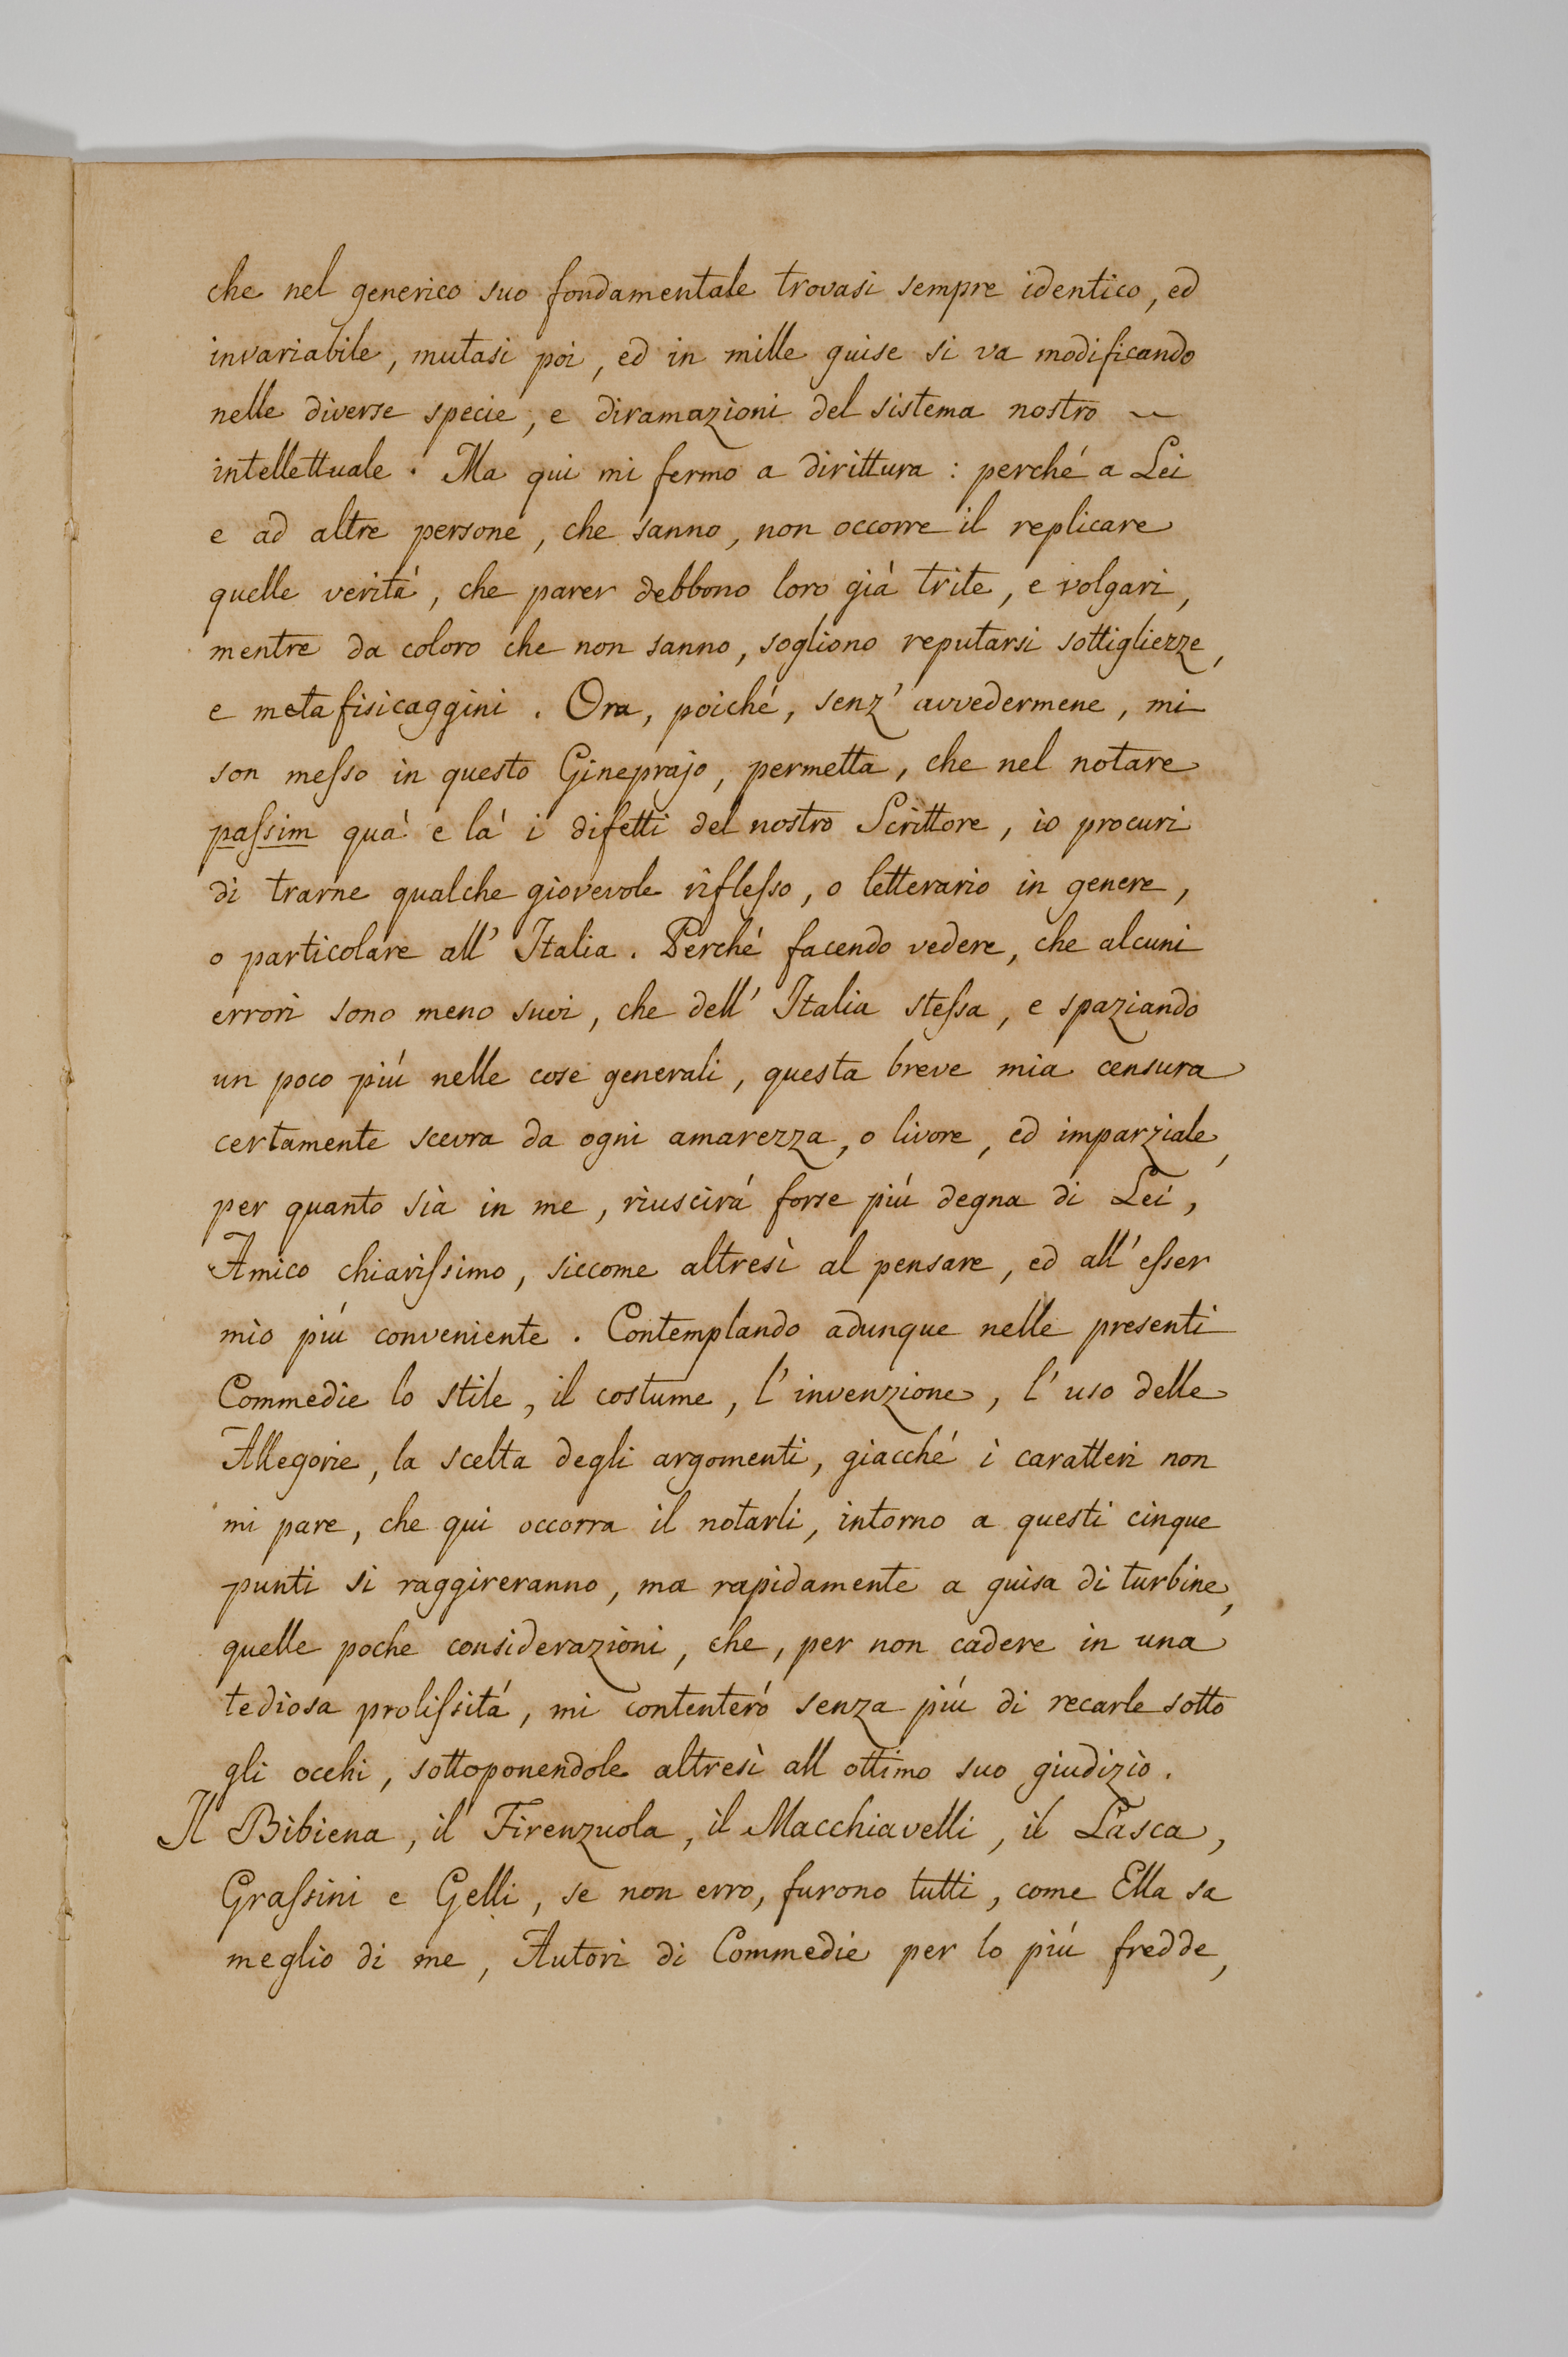 che nel generico suo fondamentale trovasi sempre identico, ed
invariabile, mutasi poi, ed in mille guise si va modificando
nelle diverse specie, e diramazioni del sistema nostro ~
intellettuale. Ma qui mi fermo a dirittura: perché a Lei
e ad altre persone, che sanno, non occorre il replicare
quelle veritá, che parer debbono loro giá trite, e volgari,
mentre da coloro che non sanno, sogliono reputarsi sottigliezze,
e metafisicaggini. Ora, poiché, senz' avvedermene, mi
son meſso in questo Gineprajo, permetta, che nel notare
paſsim quá e lá i difetti del nostro Scrittore, io procuri
di trarne qualche giovevole rifleſso, o letterario in genere,
o particolare all' Italia. Perché facendo vedere, che alcuni
errori sono meno suoi, che dell' Italia steſsa, e spaziando
un poco piú nelle cose generali, questa breve mia censura
certamente scevra da ogni amarezza, o livore, ed imparziale,
per quanto sia in me, riuscirá forse piú degna di Lei,
Amico chiariſsimo, siccome altresì al pensare, ed all' eſser
mio piú conveniente. Contemplando adunque nelle presenti
Commedie lo stile, il costume, l' invenzione, l' uso delle
Allegorie, la scelta degli argomenti, giacché i caratteri non
mi pare, che qui occorra il notarli, intorno a questi cinque
punti si raggireranno, ma rapidamente a guisa di turbine,
quelle poche considerazioni, che, per non cadere in una
tediosa proliſsitá, mi contenteró senza piú di recarle sotto
gli occhi, sottoponendole altresì all ottimo suo giudizio.
Il Bibiena, il Firenzuola, il Macchiavelli, il Lasca,
Graſsini e Gelli, se non erro, furono tutti, come Ella sa
meglio di me, Autori di Commedie per lo piú fredde,